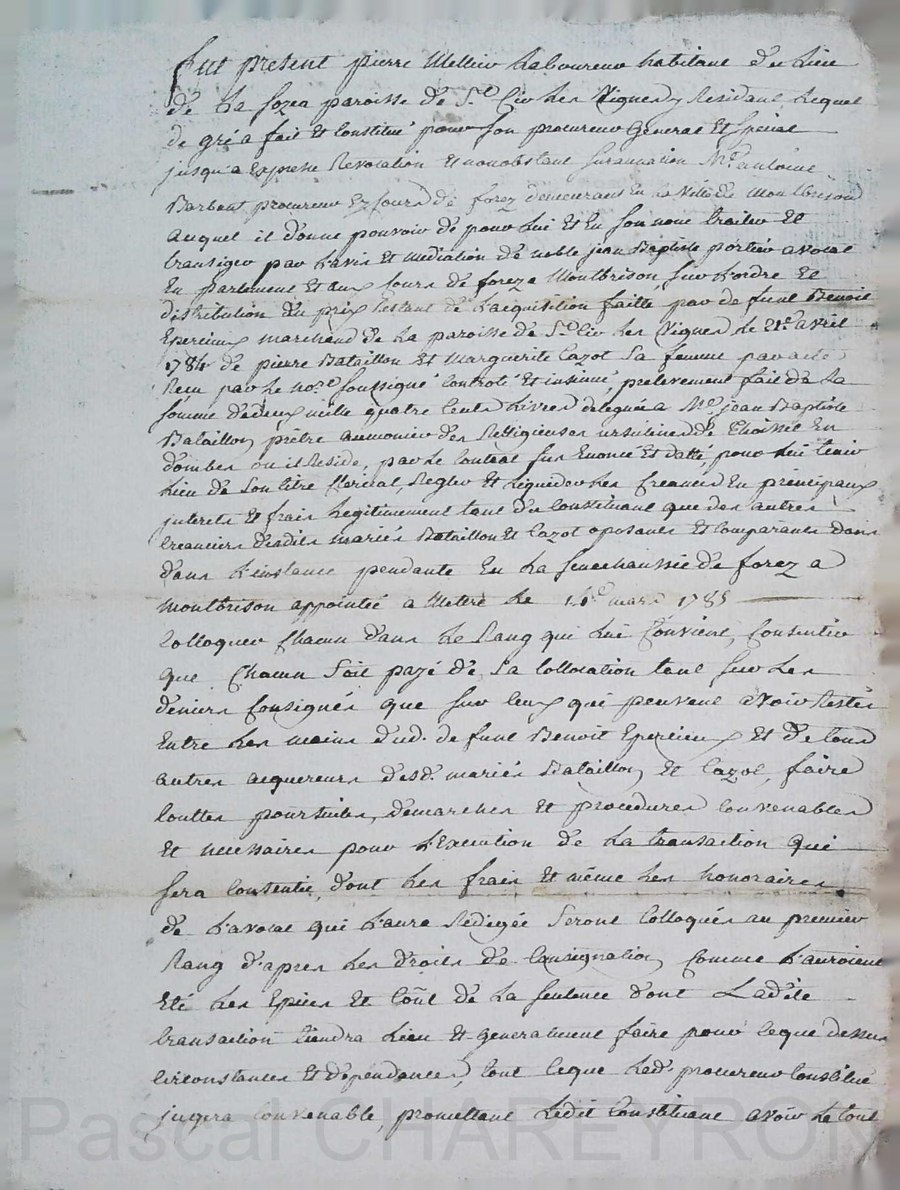 fut present pierre Mellier Laboureur habitant du Lieu
de La fozea paroisse de S.t Cir Les Vignes y Residant, Lequel
de gré a fait Et Constitué pour son procureur General Et special
jusqu'a Expresse Revocation Et nonobstant surannation M.e antoine
Barbant procureur Ez Cours de forez demeurant En la Ville de Montbrison
auquel il donne pouvoir de pour Lui Et En son nom traiter Et
transiger par L'avis Et médiation de noble jean Baptiste portier avocat
En parlement Et aux Cours de forez a Montbrison, sur L'ordre Et
distribution du prix Restant de L'acquisition faitte par defunt Benoit
Epercieux marchand de La paroisse de S.t Cir Les Vignes Le 21.e avril
1784 de pierre Bataillon Et Marguerite Cazot Sa femme par acte
Recu par Le no.re soussigné Controlé Et insinué, prelevement fait de La
somme de deux mille quatre Cents Livres deleguée a M.e jean Baptiste
Bataillon prêtre aumonier des Religieuses ursulines de Thoissei En
dombes ou il Reside, par Le Contrat sus Enoncé Et datté, pour Lui tenir
Lieu de Son titre Clerical, Regler Et Liquider Les Creances En principaux
interets Et frais Legitimement tant du Constituant que des autres
Creanciers desdits mariés Bataillon Et Cazot oposants Et Comparants dans
dans L'instance pendante En La Senechaussée de forez a
Montbrison appointée a Mettre Le mars 1785
Colloquer Chacun dans Le Rang qui Lui Convient, Consentir
que Chacun Soit payé de Sa Collocation tant sur Les
deniers Consignés que sur Ceux qui peuvent avoir Restés
Entre Les mains dud. defunt Benoit Epercieux Et de tous
autres acquereurs desd. mariés Bataillon Et Cazot, faire
touttes poursuites, demarches Et procedures Convenables
Et necessaires pour L'Execution de La transaction qui
sera Consentie, dont Les frais Et même Les honoraires
de L'avocat qui L'aura Redigée Seront Colloqués au premier
Rang d'apres Les droits de Consignation, Comme L'auroient
Eté Les Epices Et Coût de La sentence dont Ladite
transaction tiendra Lieu Et generalement faire pour Ceque dessus
Circonstances Et dépendances, tout Ceque Led. procureur Constitué
jugera Convenable, promettant Ledit Constituant avoir Le tout
Pascal CHAREYRON